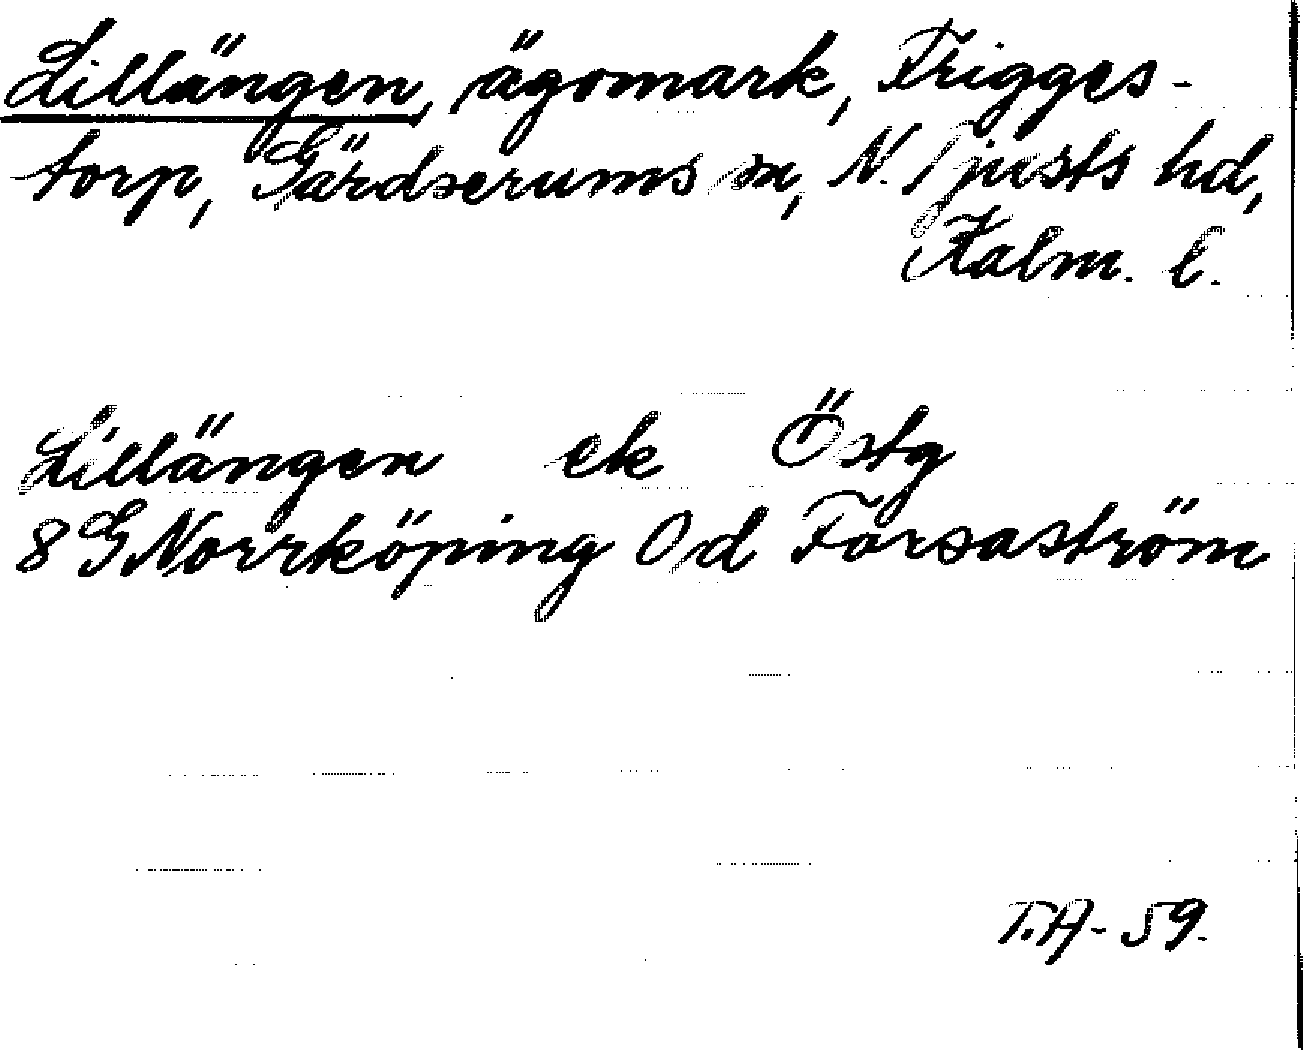 Lillängen, ägomark, Frigges-
torp, Gärdserums sn, N. Tjusts hd,
Kalm. l.
Lillängen ek Östg
8 G Norrköping 0 d Forsaström
T.A-59.